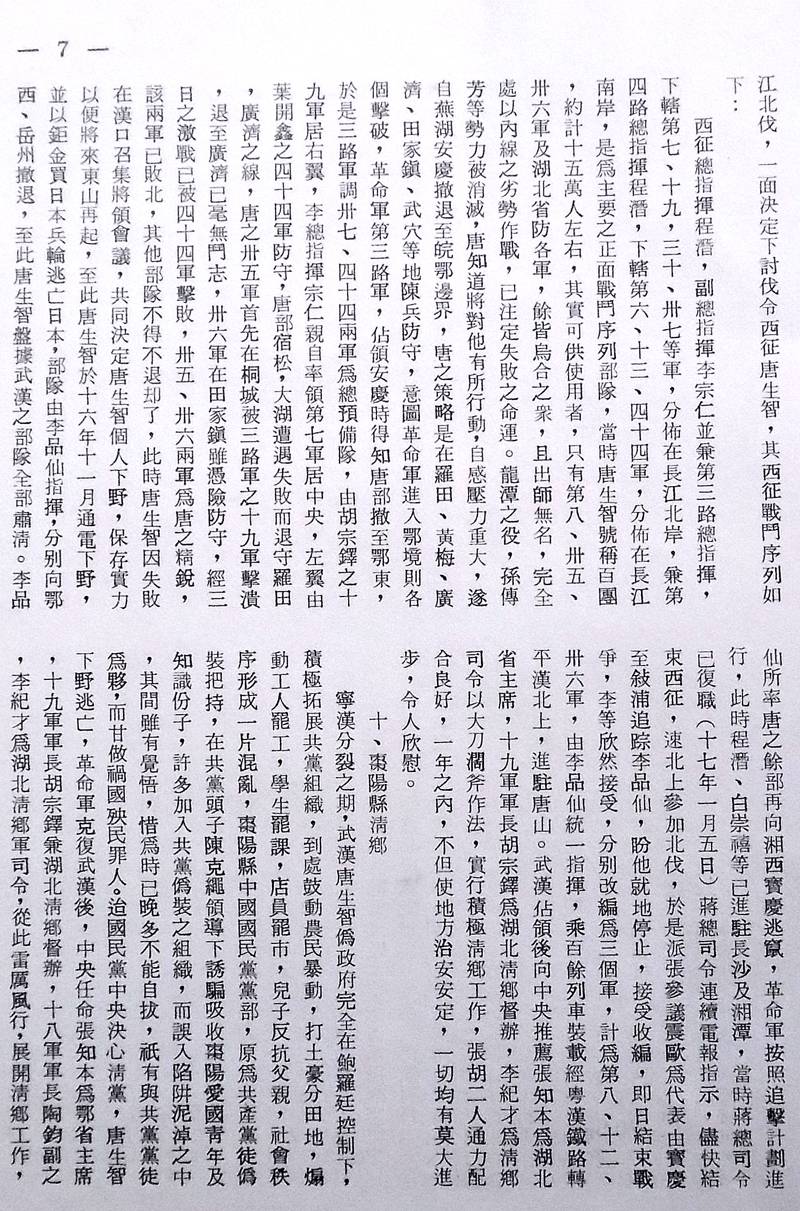 — 7 —
江北伐，一面決定下討伐令西征唐生智，其西征戰鬥序列如
下：
西征總指揮程潛，副總指揮李宗仁並兼第三路總指揮，
下轄第七、十九，三十、卅七等軍，分佈在長江北岸，兼第
四路總指揮程潛，下轄第六、十三、四十四軍，分佈在長江
南岸，是爲主要之正面戰鬥序列部隊，當時唐生智號稱百團
，約計十五萬人左右，其實可供使用者，只有第八、卅五、
卅六軍及湖北省防各軍，餘皆烏合之衆，且出師無名，完全
處以內線之劣勢作戰，已注定失敗之命運。龍潭之役，孫傳
芳等勢力被消滅，唐知道將對他有所行動，自感壓力重大，遂
自蕪湖安慶撤退至皖鄂邊界，唐之策略是在羅田、黃梅、廣
濟、田家鎮、武穴等地陳兵防守，意圖革命軍進入鄂境則各
個擊破，革命軍第三路軍，佔領安慶時得知唐部撤至鄂東，
於是三路軍調卅七、四十四兩軍爲總預備隊，由胡宗鐸之十
九軍居右翼，李總指揮宗仁親自率領第七軍居中央，左翼由
葉開鑫之四十四軍防守，唐部宿松，大湖遭遇失敗而退守羅田
，廣濟之線，唐之卅五軍首先在桐城被三路軍之十九軍擊潰
，退至廣濟已毫無鬥志，卅六軍在田家鎮雖憑險防守，經三
日之激戰已被四十四軍擊敗，卅五、卅六兩軍爲唐之精銳，
該兩軍已敗北，其他部隊不得不退却了，此時唐生智因失敗
在漢口召集將領會議，共同決定唐生智個人下野，保存實力
以便將來東山再起，至此唐生智於十六年十一月通電下野，
並以鉅金買日本兵輪逃亡日本，部隊由李品仙指揮，分別向鄂
西、岳州撤退，至此唐生智盤據武漢之部隊全部肅清。李品
仙所率唐之餘部再向湘西寶慶逃竄，革命軍按照追擊計劃進
行，此時程潛、白崇禧等已進駐長沙及湘潭，當時蔣總司令
已復職（十七年一月五日）蔣總司令連續電報指示，儘快結
東西征，速北上參加北伐，於是派張參議震歐爲代表由寶慶
至敍浦追踪李品仙，盼他就地停止，接受收編，即日結束戰
爭，李等欣然接受，分別改編爲三個軍，計爲第八、十二、
卅六軍，由李品仙統一指揮，乘百餘列車裝載經粤漢鐵路轉
平漢北上，進駐唐山。武漢佔領後向中央推薦張知本爲湖北
省主席，十九軍軍長胡宗鐸爲湖北清鄉督辦，李紀才爲清鄉
司令以大刀濶斧作法，實行積極清鄉工作，張胡二人通力配
合良好，一年之內，不但使地方治安安定，一切均有莫大進
步，令人欣慰。
十、棗陽縣清鄉
寧漢分裂之期，武漢唐生智僞政府完全在鮑羅廷控制下，
積極拓展共黨組織，到處鼓動農民暴動，打土豪分田地，煽
動工人罷工，學生罷課，店員罷市，兒子反抗父親，社會秩
序形成一片混亂，棗陽縣中國國民黨黨部，原爲共產黨徒僞
裝把持，在共黨頭子陳克繩領導下誘騙吸收棗陽愛國青年及
知識份子，許多加入共黨僞裝之組織，而誤入陷阱泥淖之中
，其間雖有覺悟，惜爲時已晚多不能自拔，祇有與共黨黨徒
爲夥，而甘做禍國殃民罪人。迨國民黨中央決心清黨，唐生智
下野逃亡，革命軍克復武漢後，中央任命張知本爲鄂省主席
，十九軍軍長胡宗鐸兼湖北清鄉督辦，十八軍軍長陶鈞副之
，李紀才爲湖北清鄉軍司令，從此雷厲風行，展開清鄉工作，